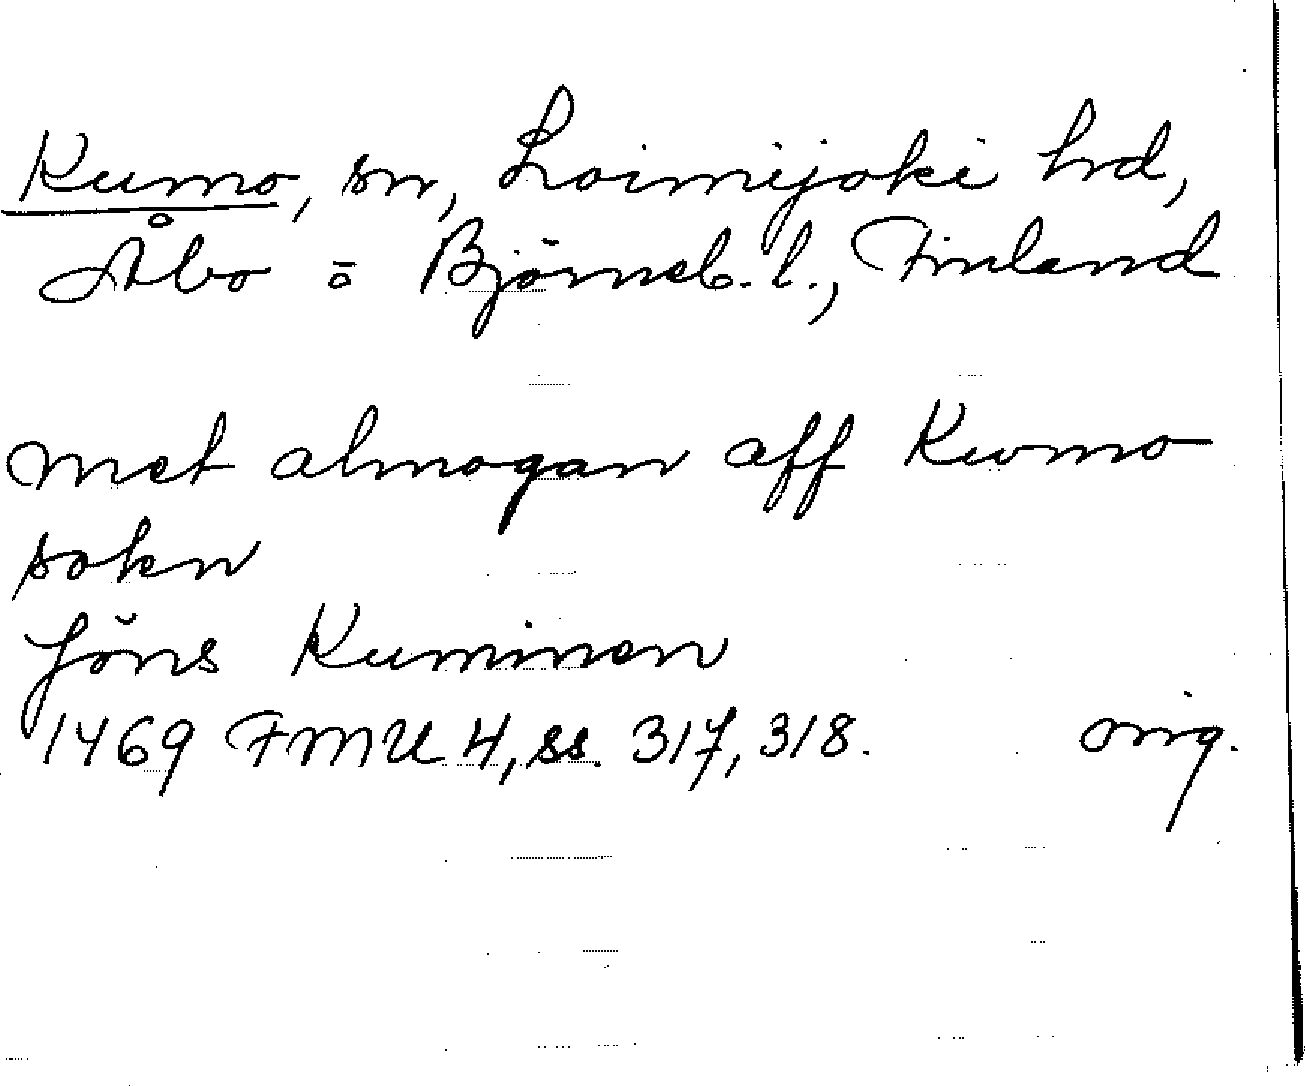 Kumo, sn, Loimijoki hrd,
Åbo o Björneb. l., Finland
met almogan aff Kwmo
sokn
Jöns Kuminen
1469 FMU 4, ss. 317, 318. orig.